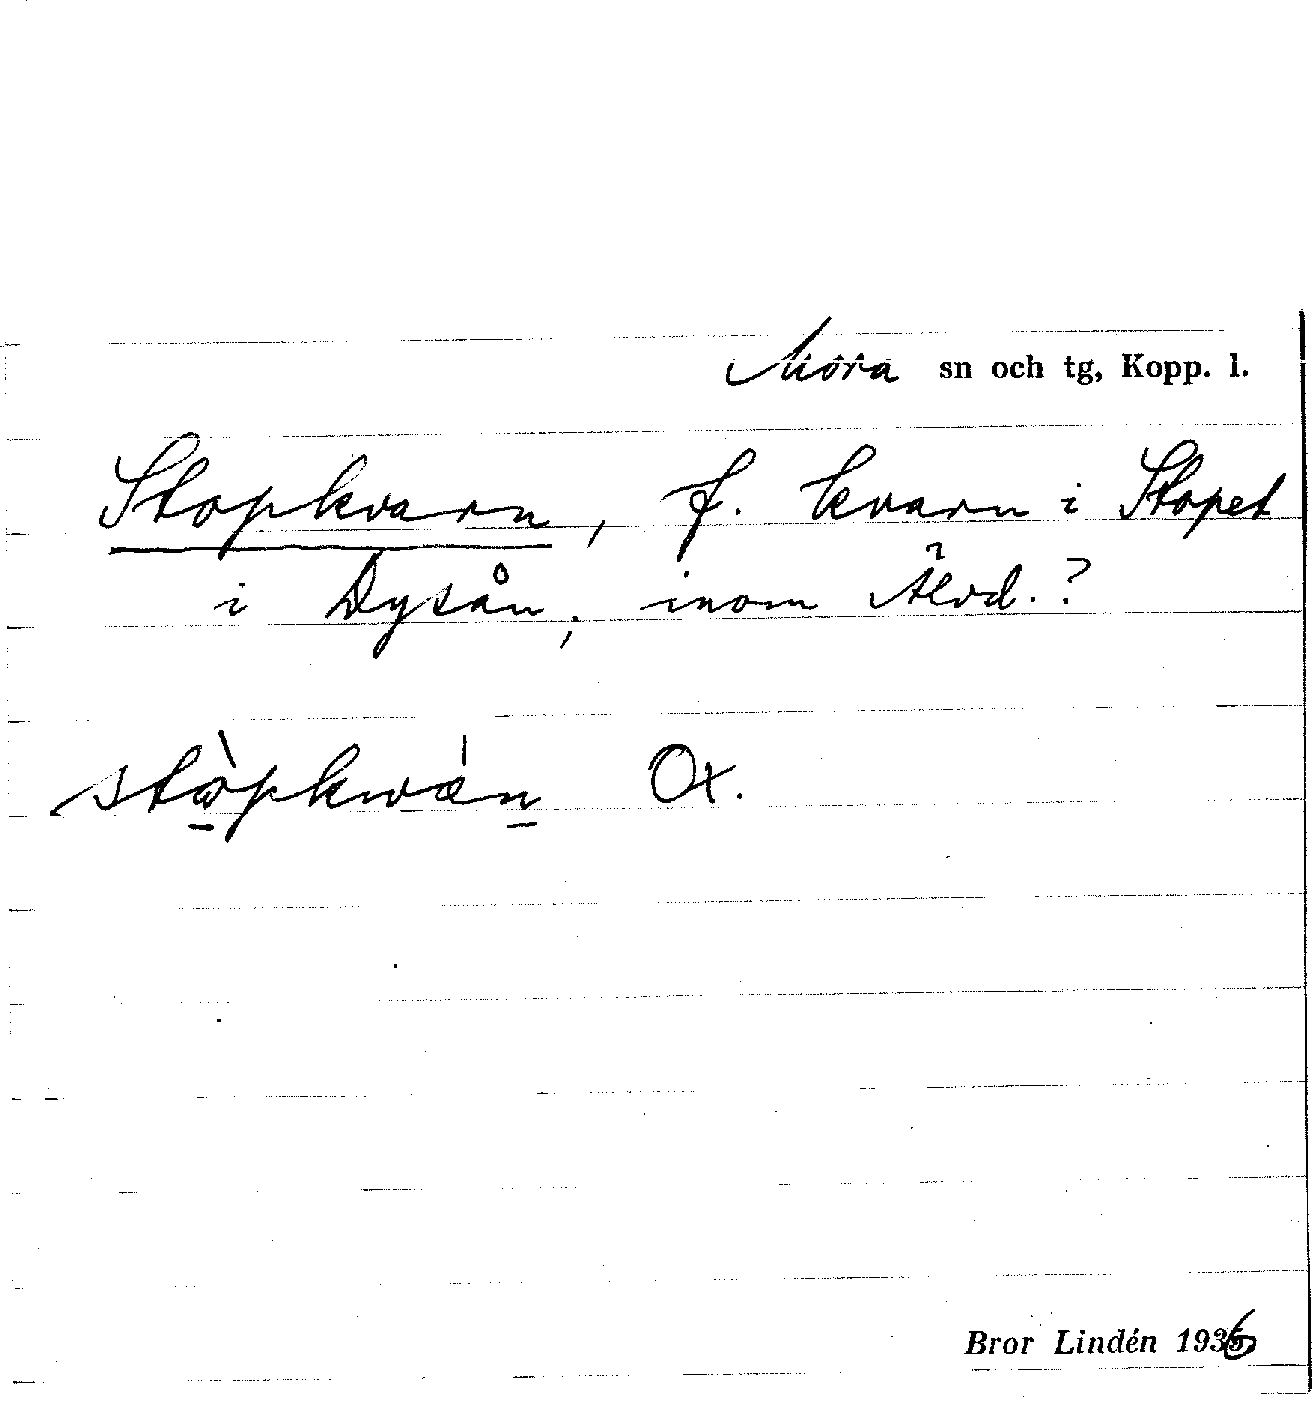 Mora sn och tg, Kopp. l.
Stopkvarn, f. kvarn i Stopet
i Dysån, inom Älvd.?
Ox.
Bror Lindén 1936